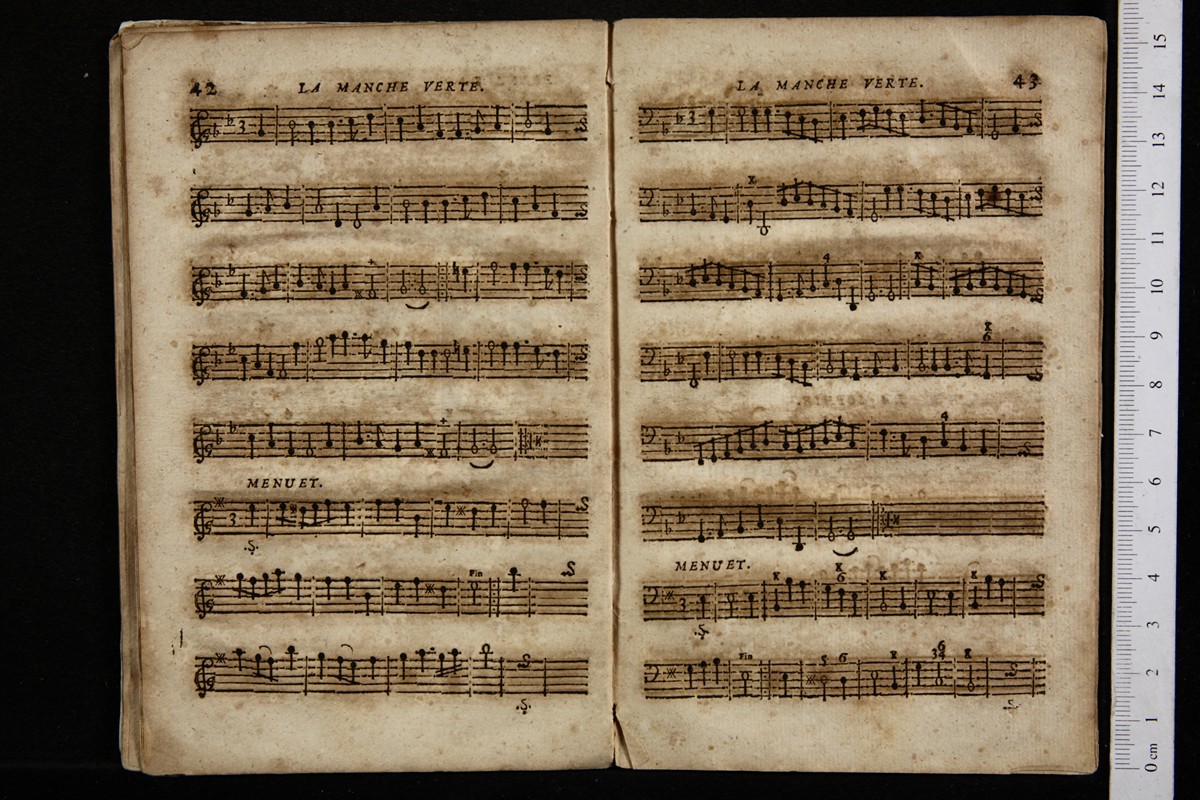 42 LA MANCHE VERTE.
3
MENUET.
3
Fin
LA MANCHE VERTE. 43
3
4
6
4
MENUET.
6
3
Fin 5 6 6
34
15
14
13
12
11
10
9
8
7
6
5
4
3
2
1
0 cm